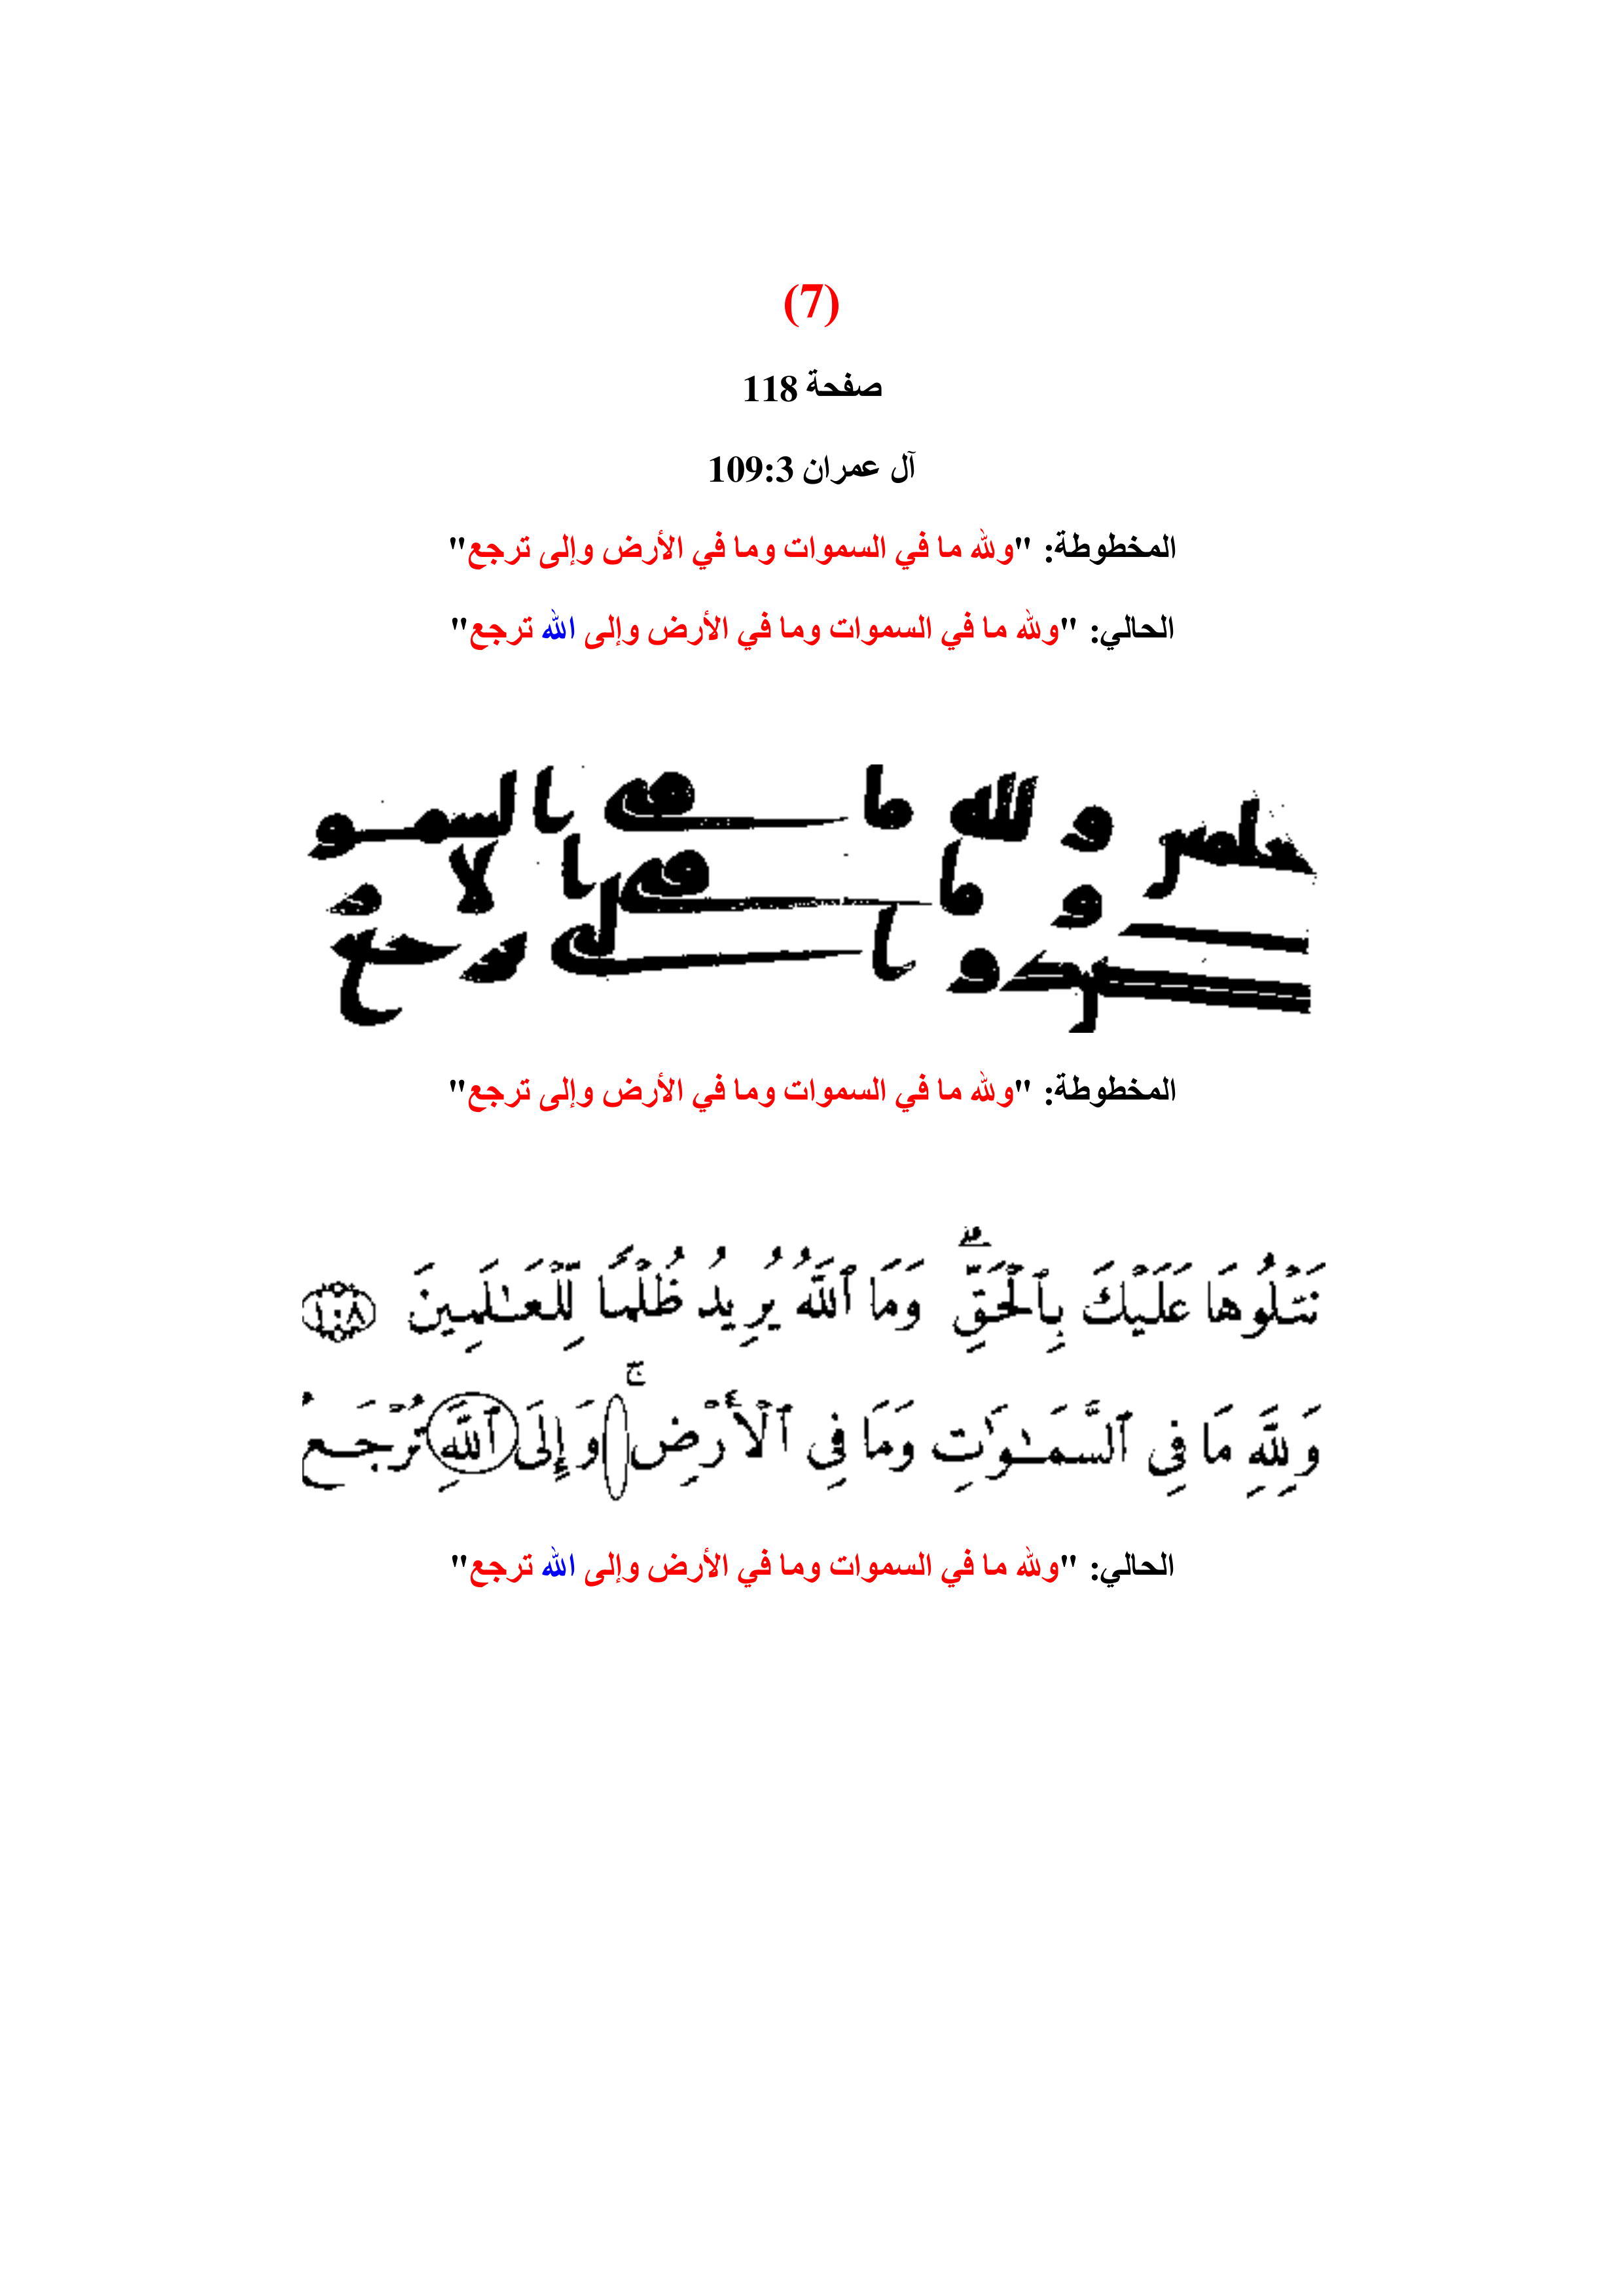 (7)
صفحة 118
آل عمران 109:3
المخطوطة: "ولله ما في السموات وما في الأرض وإلى ترجع"
الحالي: "ولله ما في السموات وما في الأرض وإلى الله ترجع"
ولله ما فى السمو
و ما فى ا لا ر
و ا لى ترجع
المخطوطة: "ولله ما في السموات وما في الأرض وإلى ترجع"
نَتْلُوهَا عَلَيْكَ بِٱلْحَقِّ ۗ وَمَا ٱللَّهُ يُرِيدُ ظُلْمًا لِّلْعَـٰلَمِينَ ١٠٨
وَلِلَّهِ مَا فِى ٱلسَّمَـٰوَٰتِ وَمَا فِى ٱلْأَرْضِ ۚ وَإِلَى ٱللَّهِ تُرْجَعُ
الحالي: "ولله ما في السموات وما في الأرض وإلى الله ترجع"